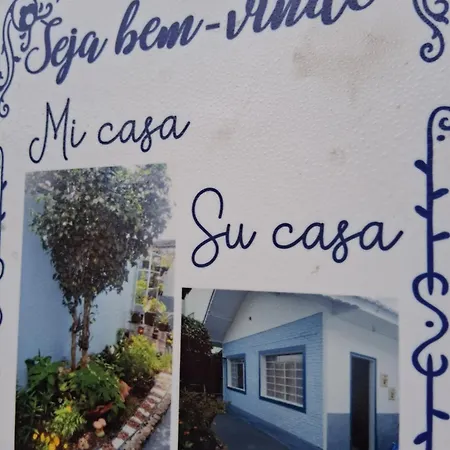 Seja bem-vindo
Mi casa
Su casa